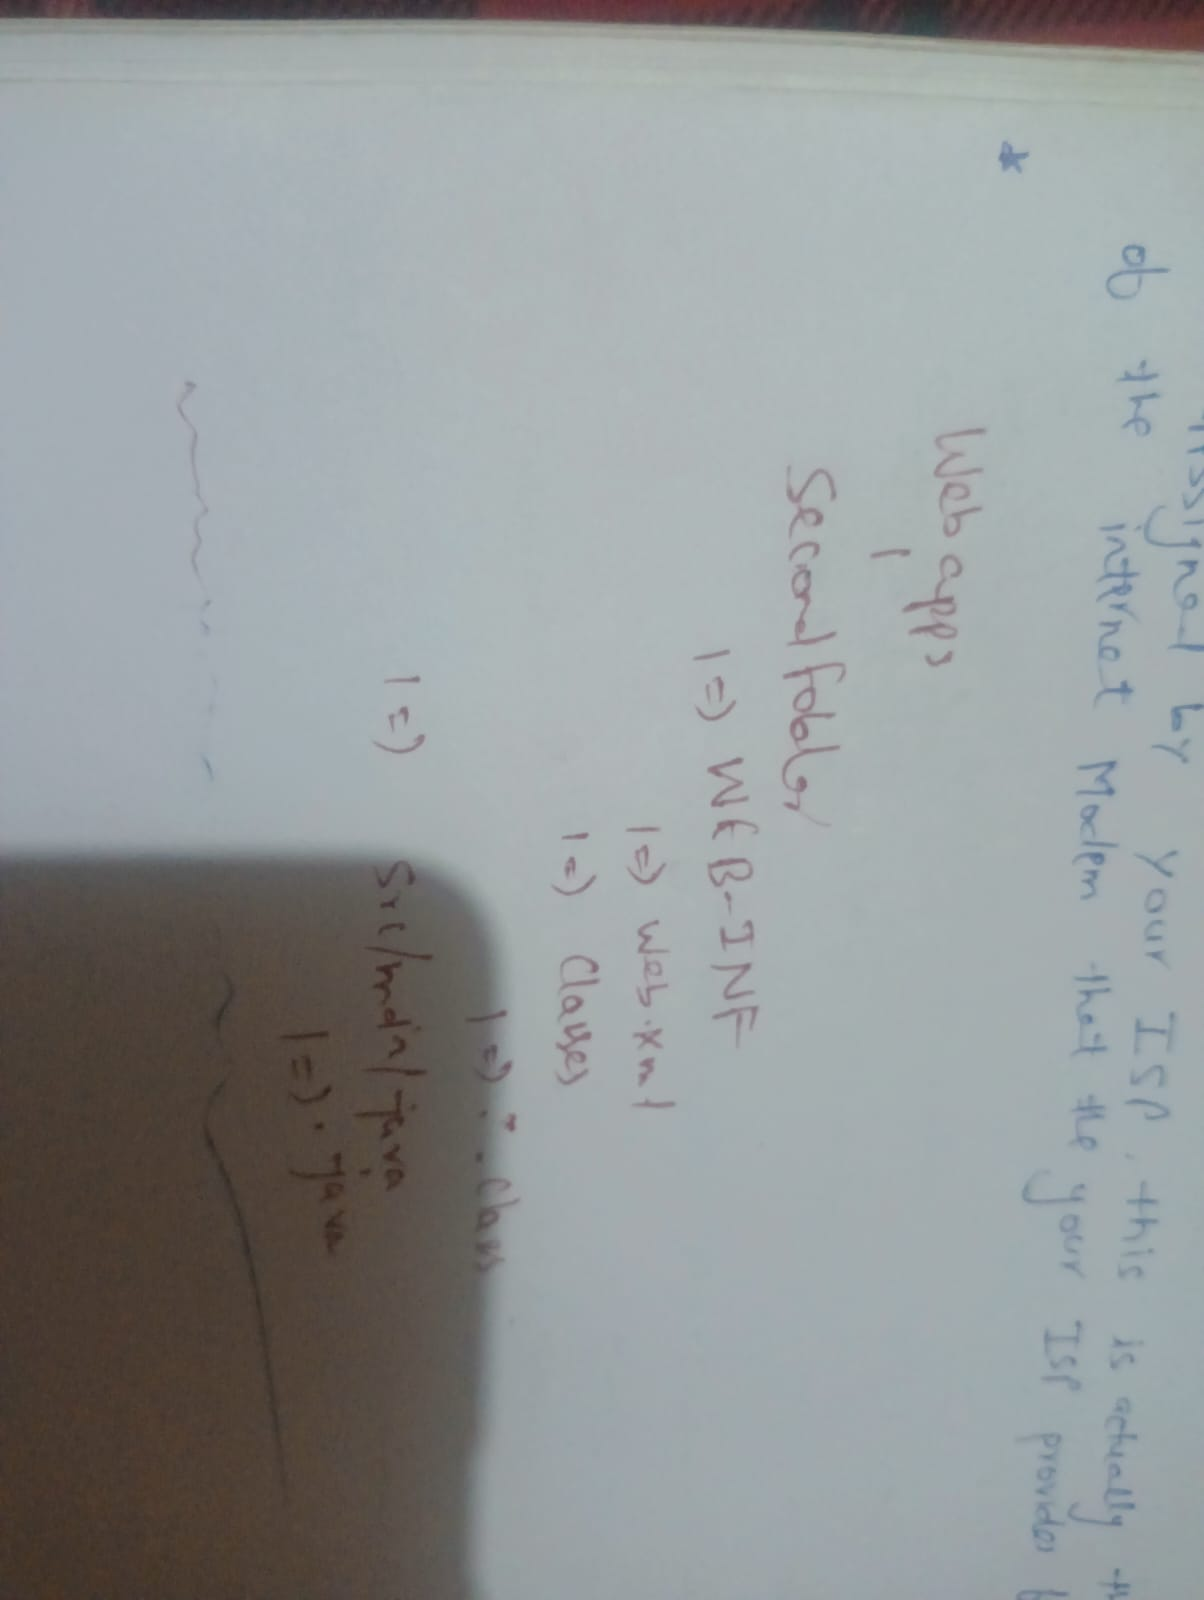 Assigned by your ISP, this is actually th
of the internet Modem that the your ISP provides
*
Web apps
|
Second folder
|=) WEB-INF
|=) web.xml
|=) Classes
|=) .class
|=) Src/main/java
|=) .java